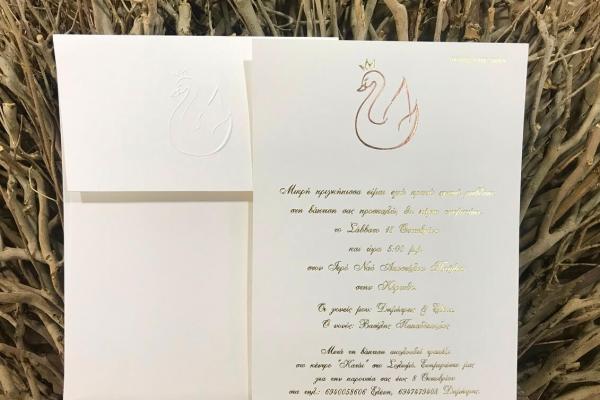 Μικρή πριγκήπισσα είμαι εγώ
στη βάπτιση σας προσκαλώ, θα
το Σάββατο 12 Οκτωβρίου
και ώρα 5:00 μ.μ.
στον Ιερό Ναό Αποστόλου Παύλου
στην Κόρινθο.
Οι γονείς μου: Δημήτρης & Ελένη
Ο νονός: Βασίλης Παπαδόπουλος
Μετά τη βάπτιση ακολουθεί τραπέζι
στο κέντρο "Κατώι" στο Σολομό. Ενημερώστε μας
για την παρουσία σας έως 8 Οκτωβρίου
στα τηλ.: 6940058606 Ελένη, 6947479408 Δημήτρης.